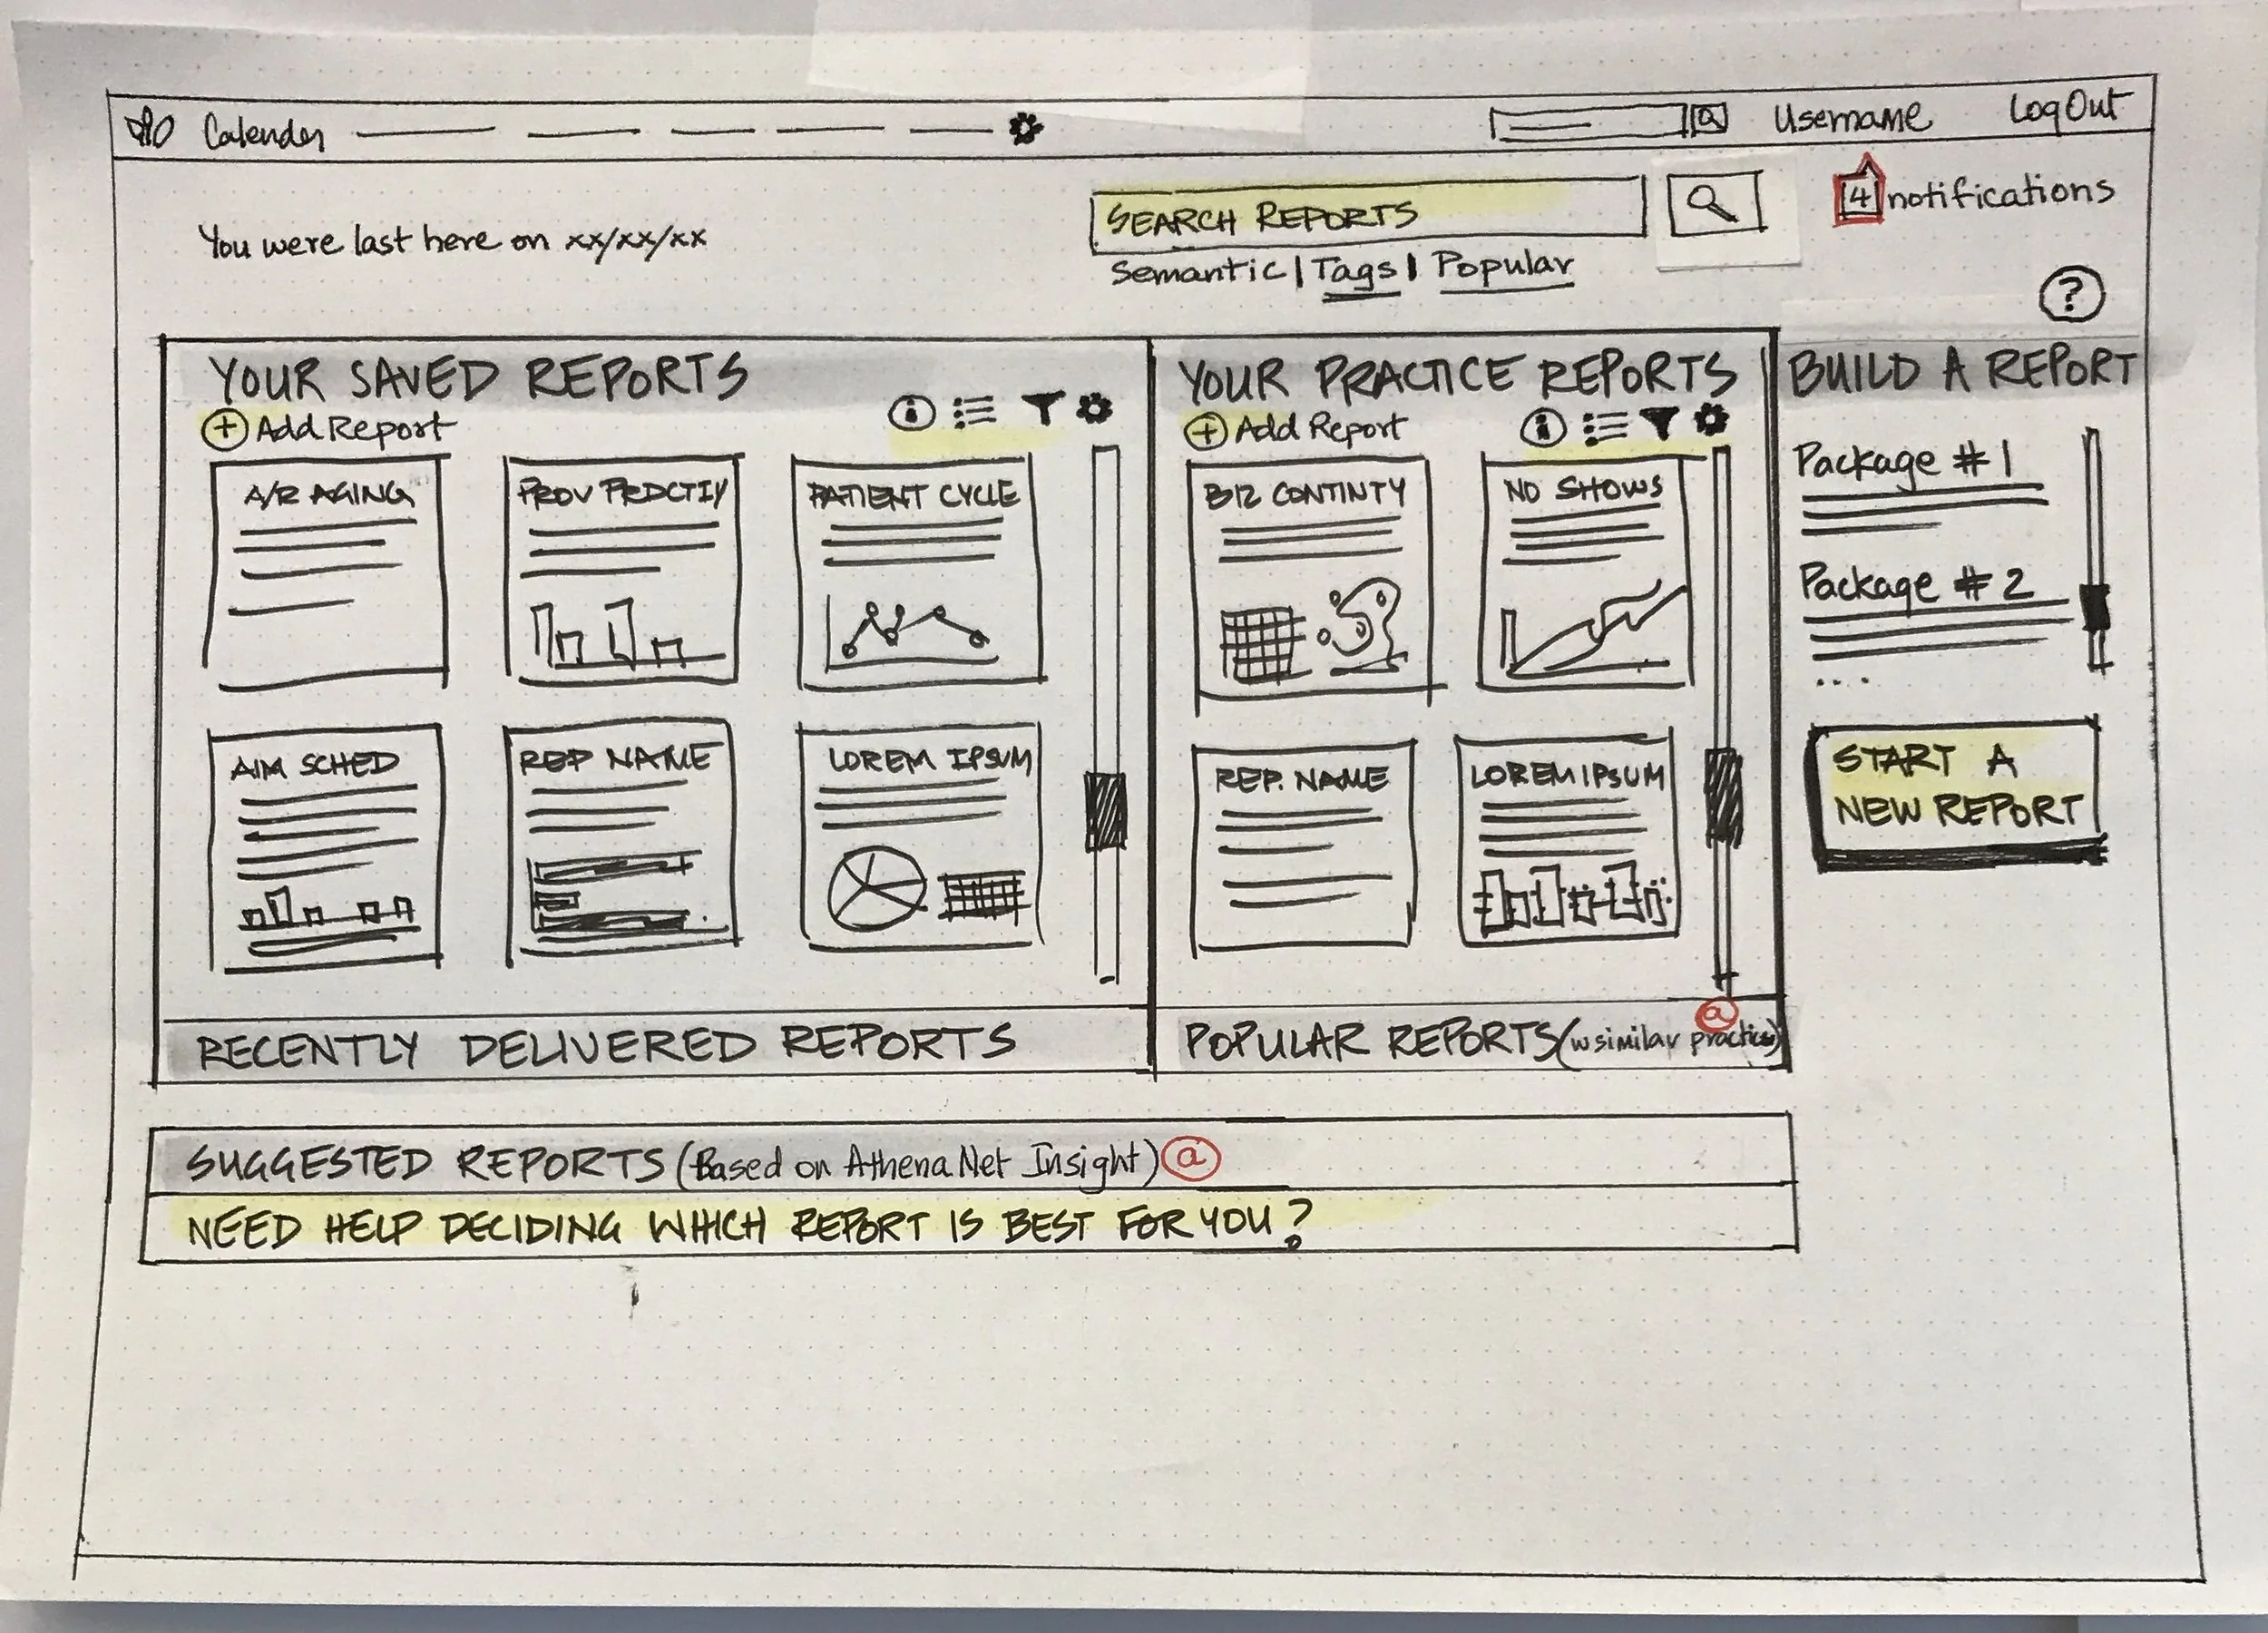 Calender
Username
LogOut
You were last here on xx/xx/xx
SEARCH REPORTS
4 notifications
Semantic | Tags | Popular
?
YOUR SAVED REPORTS
+ Add Report
YOUR PRACTICE REPORTS
+ Add Report
BUILD A REPORT
A/R AGING
PROV PRDCTIY
PATIENT CYCLE
BIZ CONTINTY
NO SHOWS
Package #1
Package #2
...
AIM SCHED
REP NAME
LOREM IPSUM
REP. NAME
LOREM IPSUM
START A
NEW REPORT
RECENTLY DELIVERED REPORTS
POPULAR REPORTS (w similar practices)
a
SUGGESTED REPORTS (Based on AthenaNet Insight) a
NEED HELP DECIDING WHICH REPORT IS BEST FOR YOU?